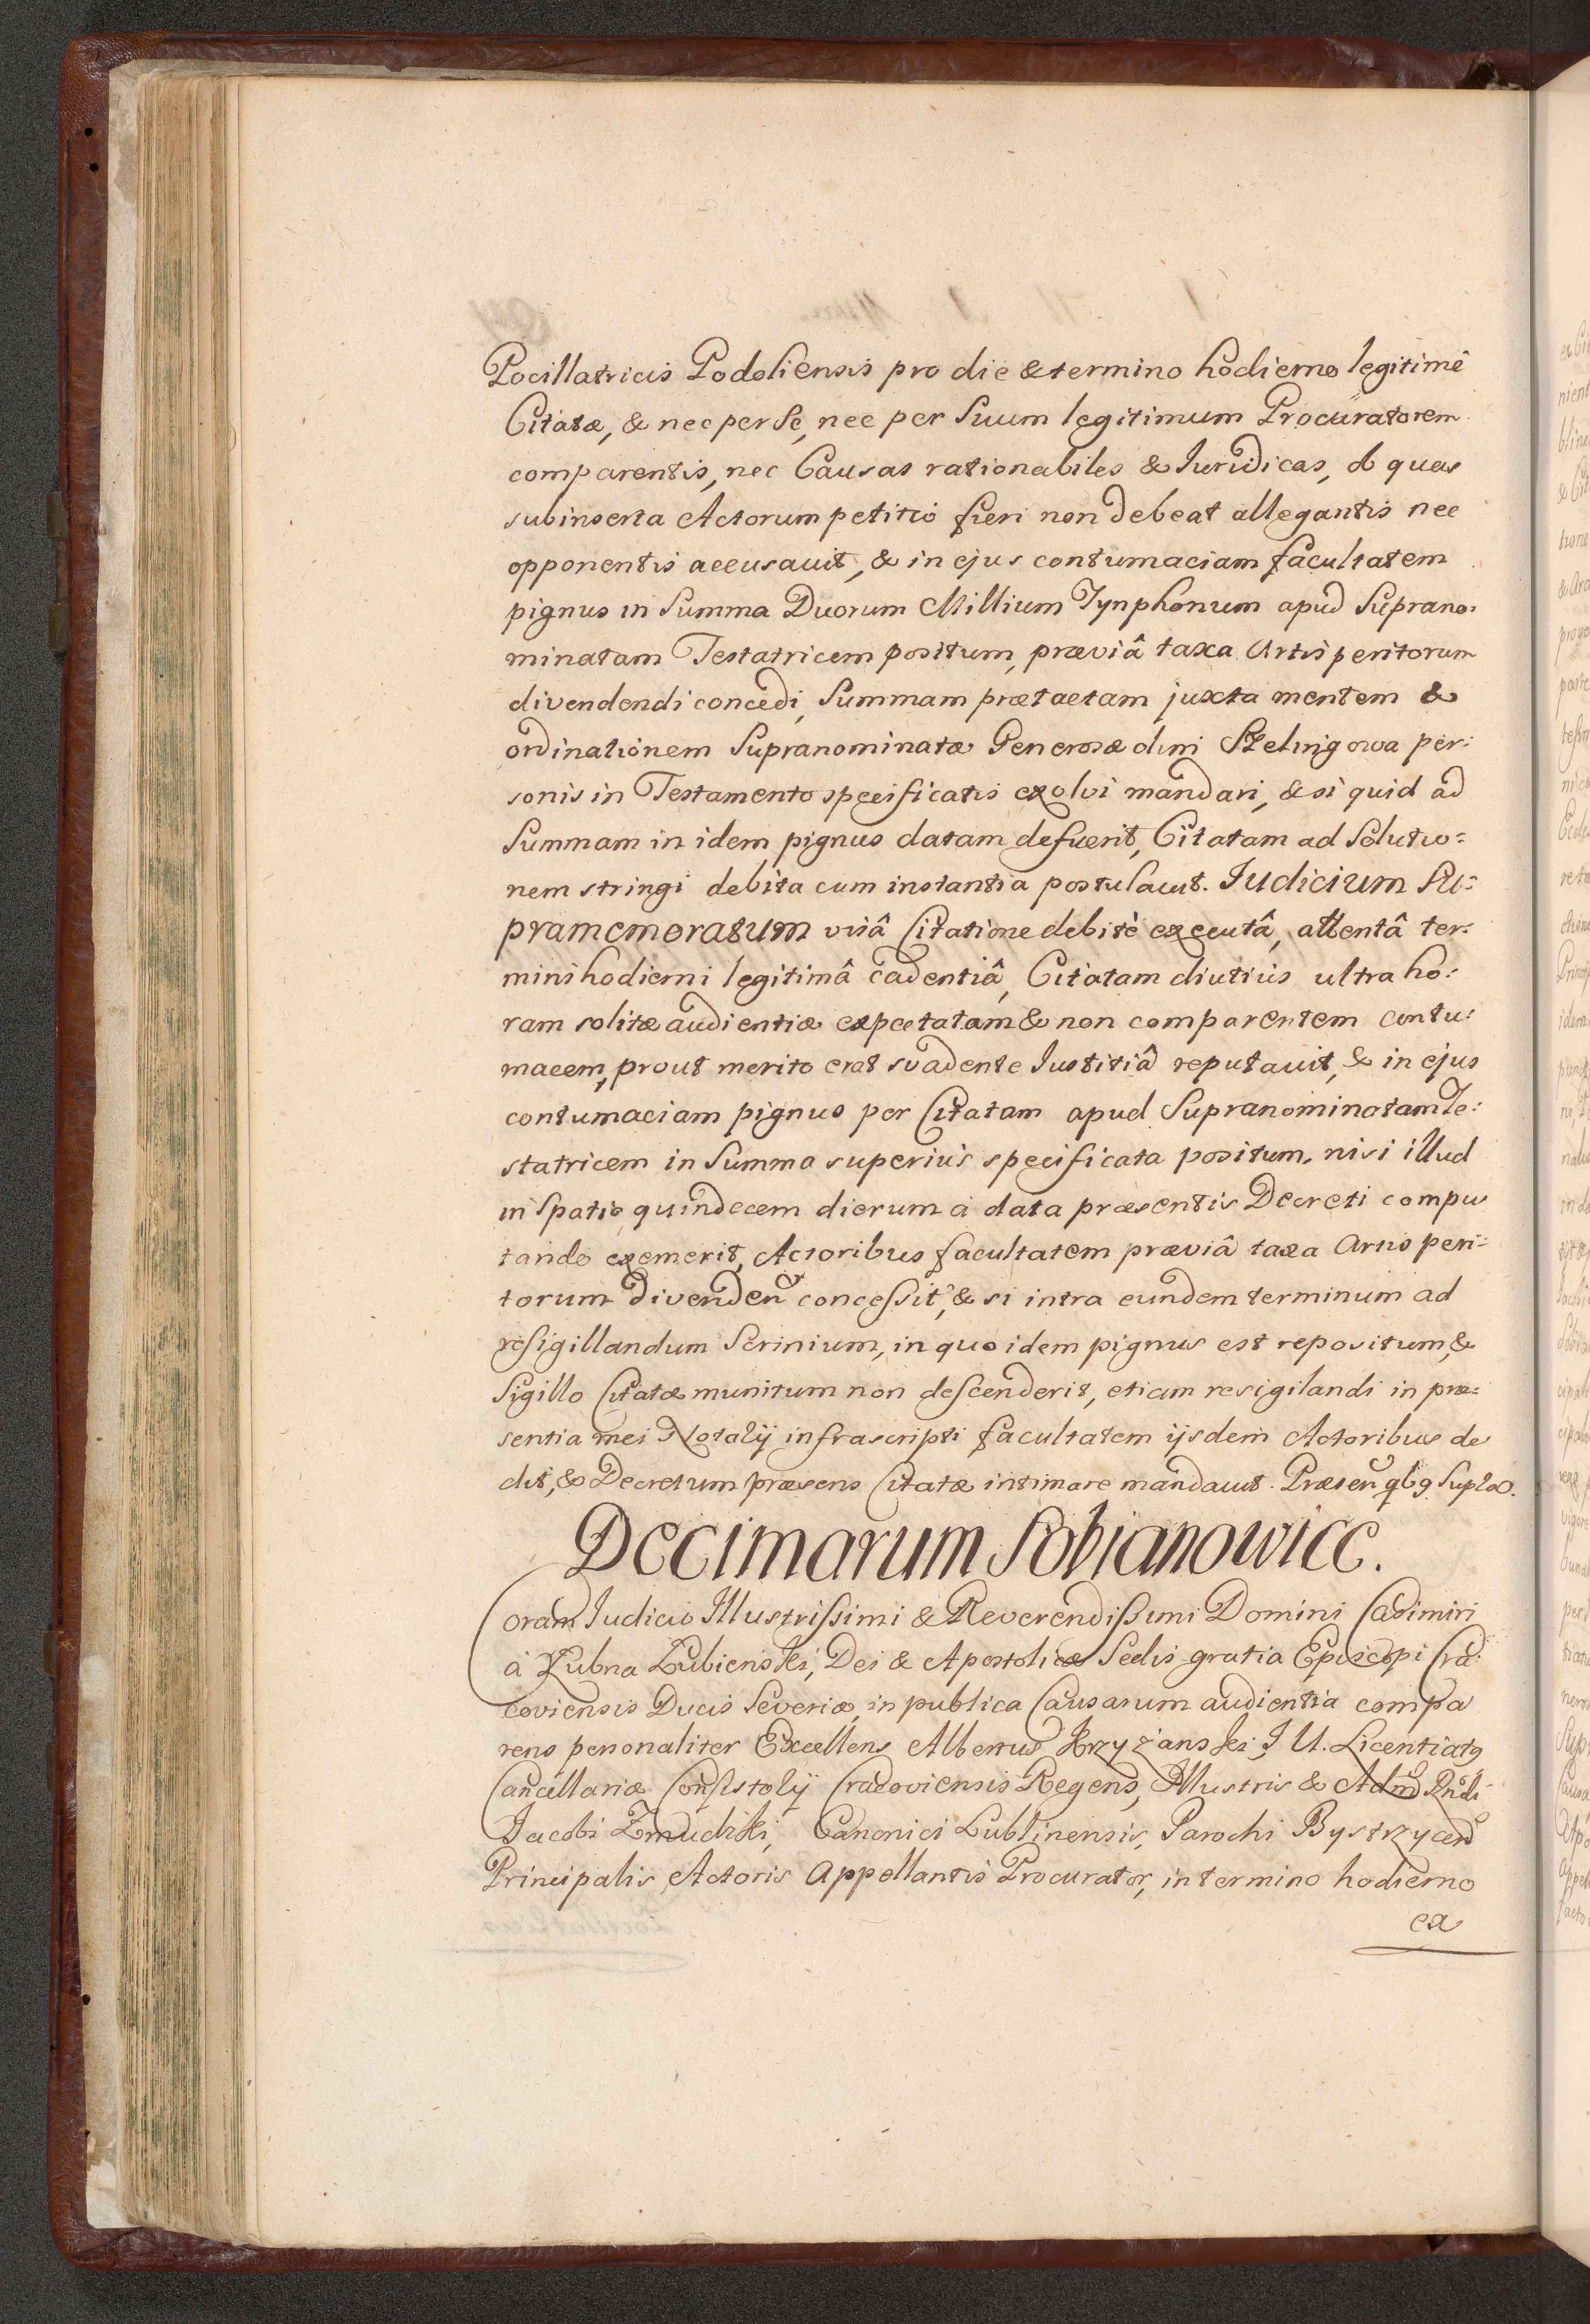 Pocillatricis Podoliensis pro die & termino hodierno legitimê
Citatæ, & nec per Se, nec per Suum legitimum Procuratorem
comparentis, nec Causas rationabiles & Iuridicas, ob quas
subinserta Actorum petitio fieri non debeat allegantis nec
opponentis accusavit, & in ejus contumaciam facultatem
pignus in Summa Duorum Millium Tynphonum apud Suprano:
minatam Testatricem positum, præviâ taxa Artis peritorum
divendendi concedi, Summam prætactam juxta mentem &
ordinationem Supranominatæ Generosæ olim Szelingowa per:
sonis in Testamento specificatis exolvi mandari, & si quid ad
Summam in idem pignus datam defuerit, Citatam ad Solutio:
nem stringi debita cum instantia postulavit. Iudicium Su:
pramemoratum visâ Citatione debitè executâ, attentâ ter:
mini hodierni legitimâ cadentiâ, Citatam diutiùs ultra ho:
ram solitæ audientiæ expectatam & non comparentem contu:
macem, prout merito erat svadente Iustitiâ reputavit, & in ejus
contumaciam pignus per Citatam apud Supranominatam Te:
statricem in Summa superiùs specificata positum, nisi illud
in Spatio quindecem dierum à data præsentis Decreti compu
tando exemerit, Actoribus facultatem præviâ taxa Artis peri:
torum divenden concessit, & si intra eundem terminum ad
resigillandum Scrinium, in quo idem pignus est repositum, &
Sigillo Citatæ munitum non descenderit, etiam resigilandi in præ:
sentia mei Notarÿ infrascripti facultatem ijsdem Actoribus de
dit, & Decretum præsens Citatæ intimare mandavit. Præsen qbg Supra.
Decimarum Sobianowice.
Coram Iudicio Illustrissimi & Reverendissimi Domini Casimiri
à Łubna Łubienski, Dei & Apostolicæ Sedis gratia Episcopi Cra:
coviensis Ducis Severiæ, in publica Causarum audientia compa
rens personaliter Excellens Albertus Krzyżanski I. U. Licentiatg
Cancellariæ Consistorÿ Cracoviensis Regens, Illustris & Adm Rndi
Jacobi Zmudzki, Canonici Lublinensis, Parochi Bystrzycen
Principalis Actoris Appellantis Procurator, in termino hodierno
ex